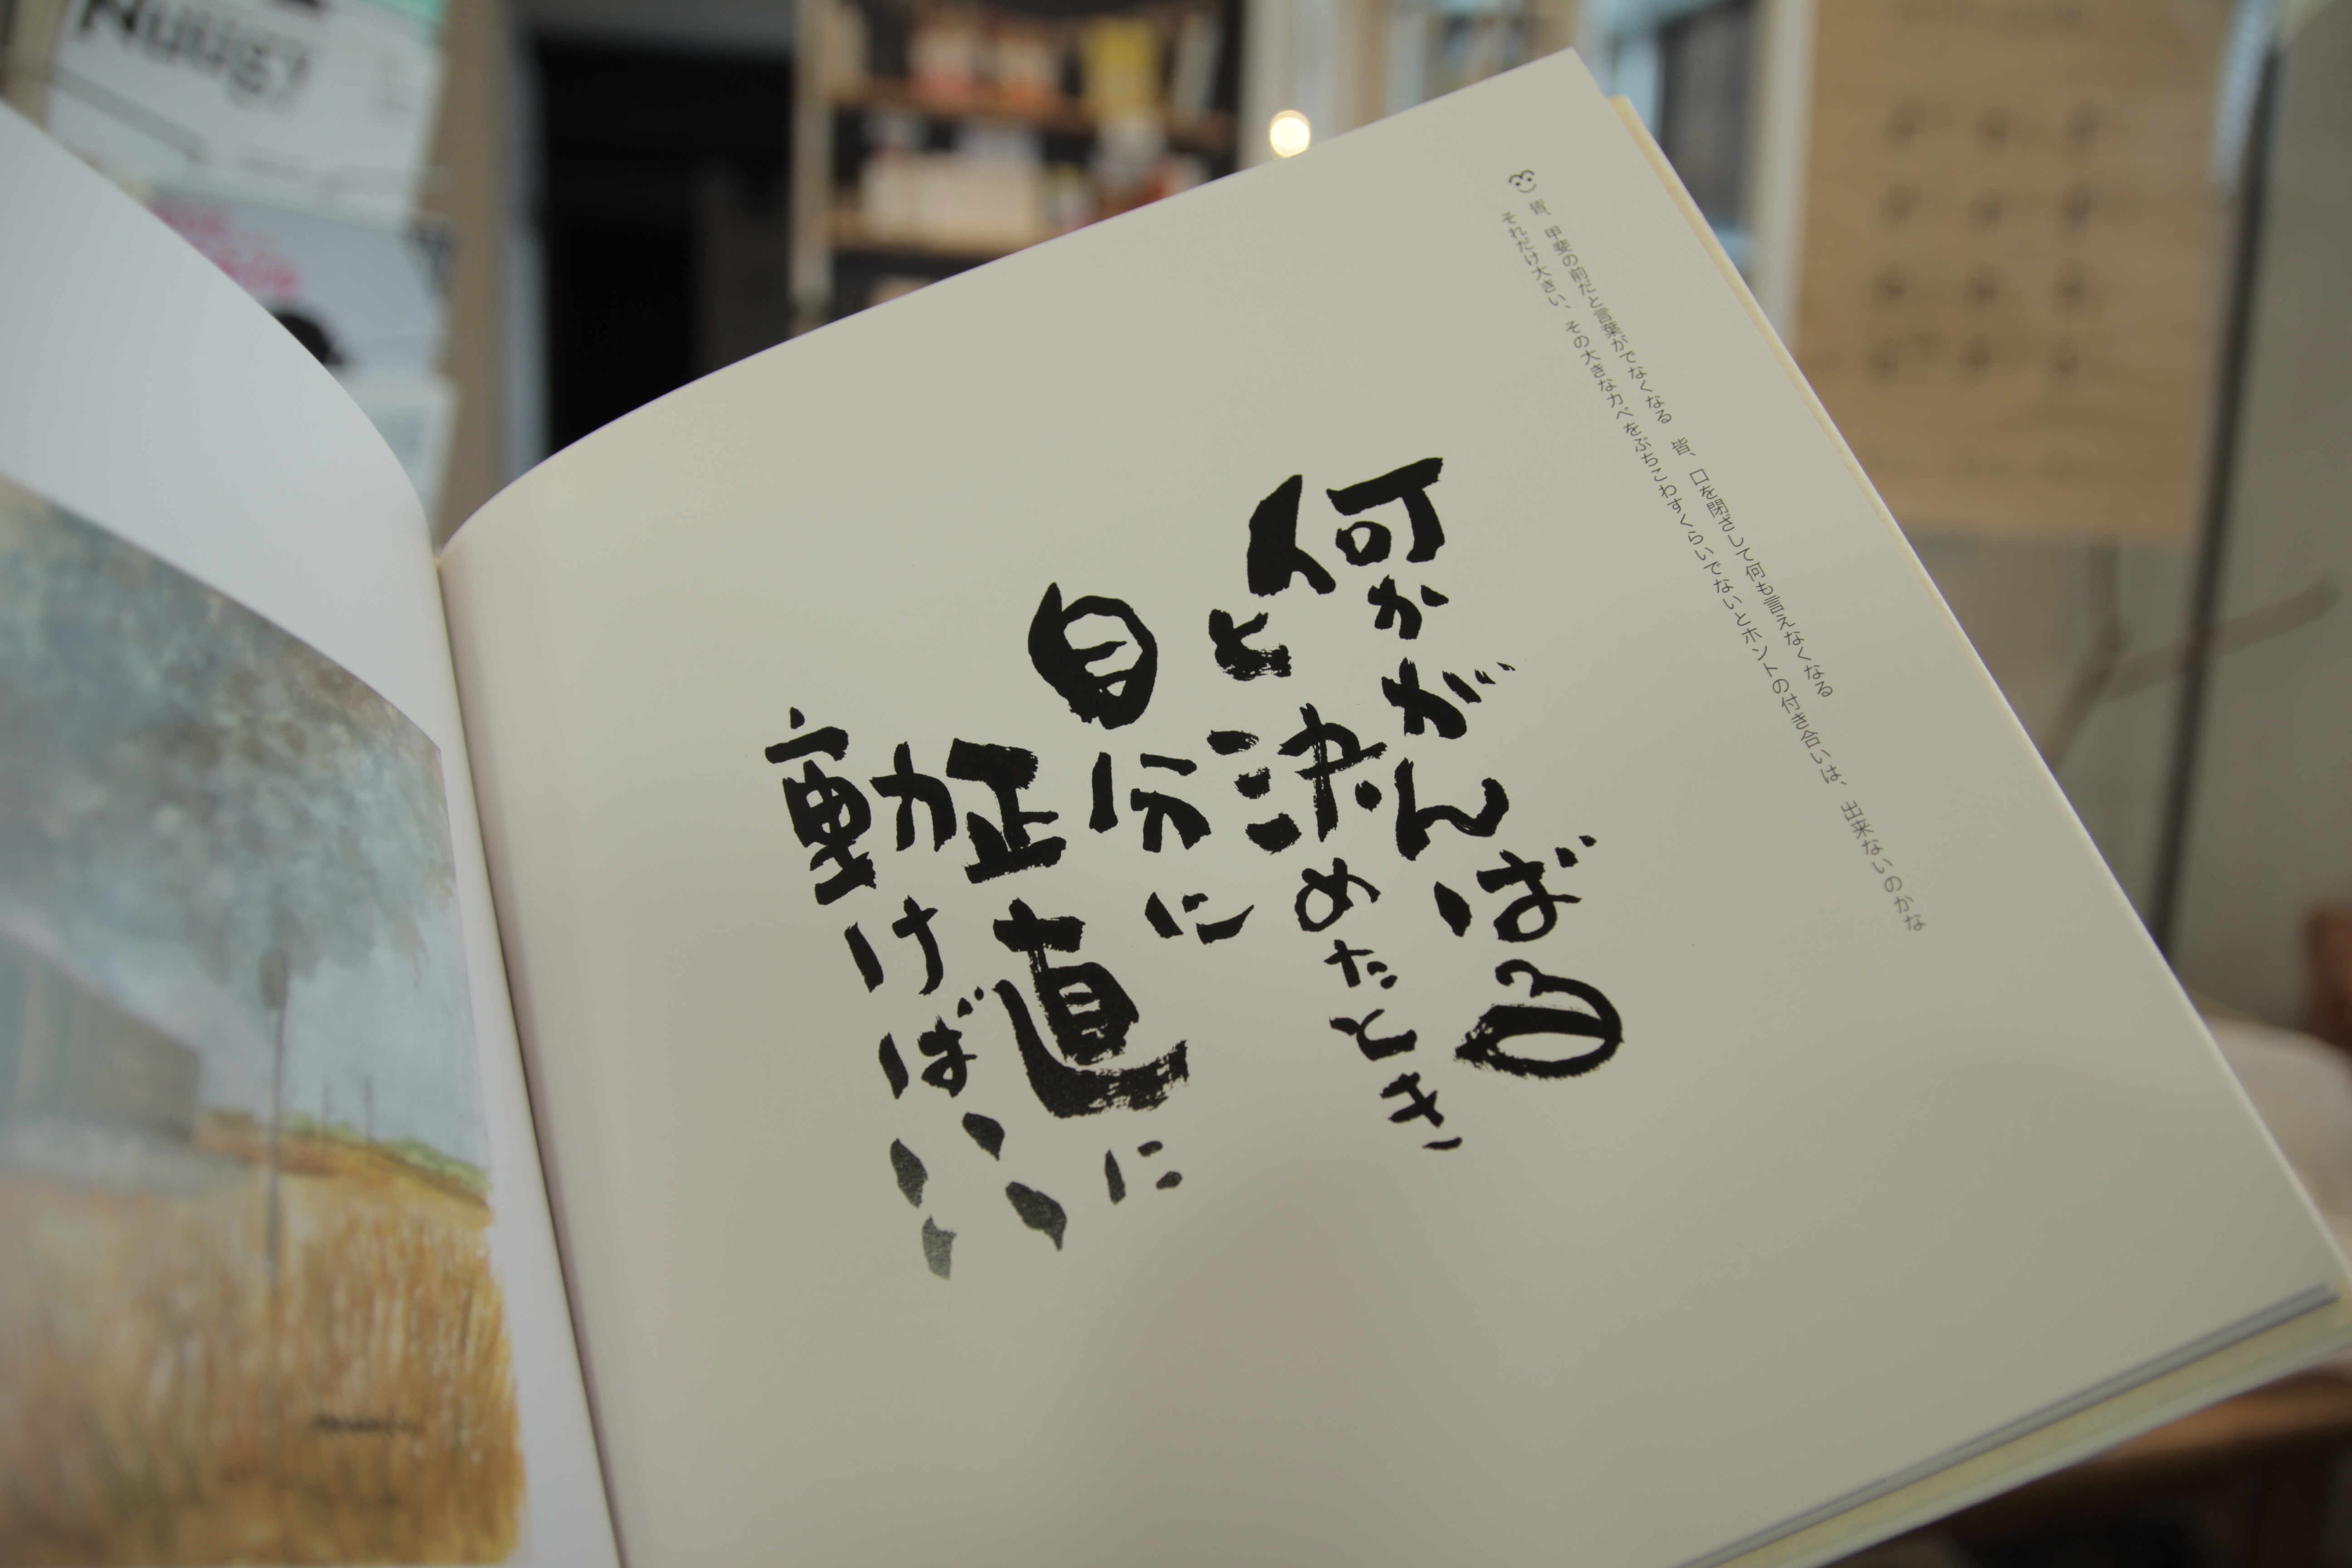 皆、甲斐の前だと言葉がでなくなる　皆、口を閉ざして何も言えなくなる
それだけ大きい、その大きなカベをぶちこわすくらいでないとホントの付き合いは、出来ないのかな
何かがんばる
と決めたとき
自分に
正直に
動けばいい